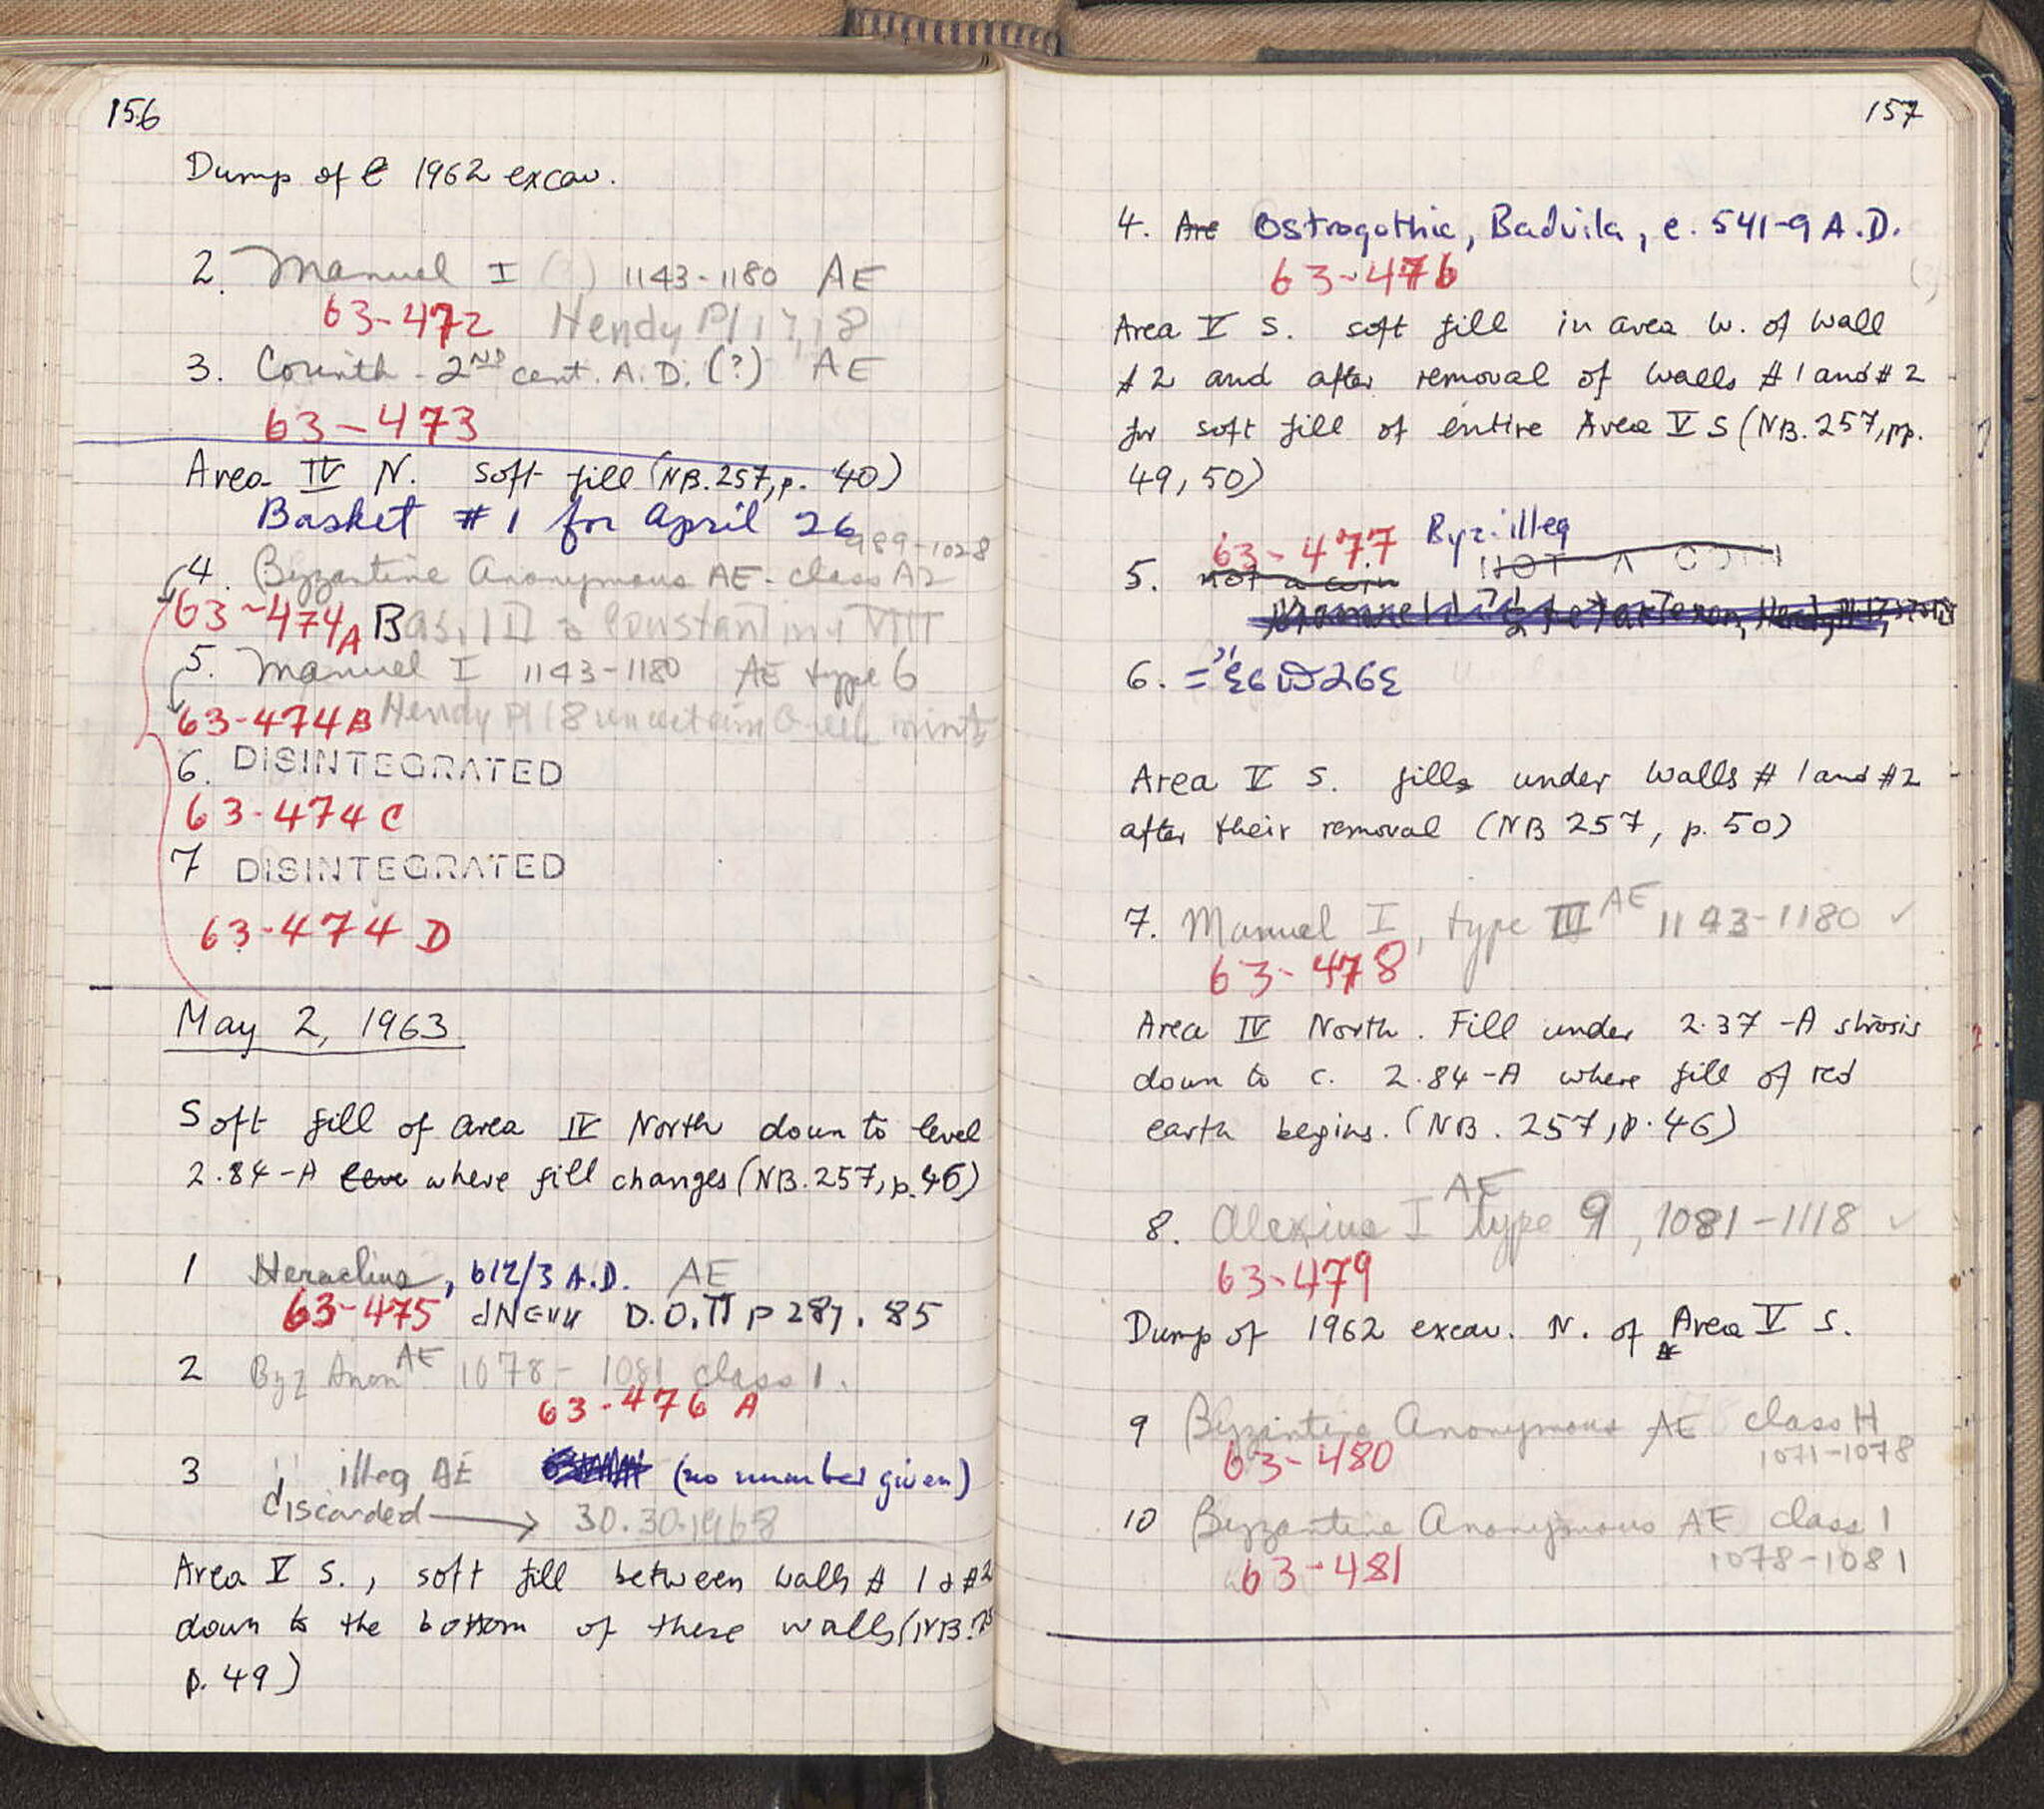 156
Dump of 1962 excav.
2. Manuel I (?) 1143-1180 AE
63-472 Hendy Pl 17, 18
3. Corinth - 2ND cent. A.D. (?) AE
63-473
Area IV N. Soft fill (NB. 257, p. 40)
Basket #1 for April 26
989-1028
4. Byzantine Anonymous AE - class A2
63-474A Basil II & Constantine VIII
5. Manuel I 1143-1180 AE type 6
63-474B Hendy Pl 18 uncertain Greek mint
6. DISINTEGRATED
63-474 C
7 DISINTEGRATED
63-474 D
May 2, 1963
Soft fill of area IV North down to level
2.84-A where fill changes (NB. 257, p. 46)
1 Heraclius, 612/3 A.D. AE
63-475 D.O. II p 287. 85
2 Byz Anon AE 1078-1081 class I.
63-476 A
3 " illeg AE (no number given)
discarded → 30.30.1968
Area V S., soft fill between walls # 1 & #2
down to the bottom of these walls (NB.
p. 49)
157
4. Are Ostrogothic, Baduila, c. 541-9 A.D.
63-476
Area V S. soft fill in area W. of Wall
#2 and after removal of walls #1 and #2
for soft fill of entire Area V S (NB. 257, pp.
49, 50)
63-477 Byz. illeg
5. not a coin NOT A COIN
6.
Area V S. fill under walls # 1 and #2
after their removal (NB 257, p. 50)
7. Manuel I, type III AE 1143-1180 ✓
63-478
Area IV North. Fill under 2.37-A strosis
down to c. 2.84-A where fill of red
earth begins. (NB. 257, p. 46)
8. Alexius I AE type 9, 1081-1118 ✓
63-479
Dump of 1962 excav. N. of Area V S.
9 Byzantine Anonymous AE class H
63-480 1071-1078
10 Byzantine Anonymous AE class I
63-481 1078-1081